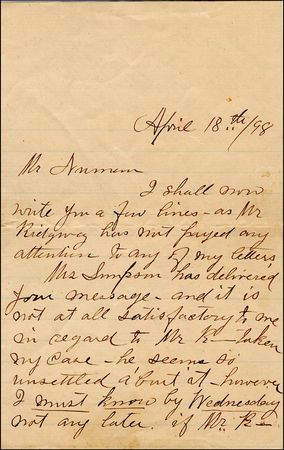 April 18th/98
Mr
I shall now
write you a few lines - as Mr
Ridgway has not payed any
attention to any of my letters
Mrs Simpson has delivered
your message - and it is
not at all satisfactory to me
in regard to Mr R - taken
my case - he seems so
unsettled about it - however
I must know by Wednesday
not any later. if Mr R -